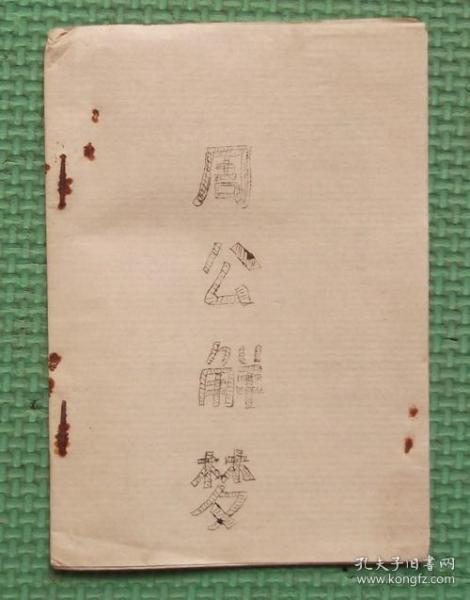 周公觧梦
孔夫子旧书网
www.kongfz.com